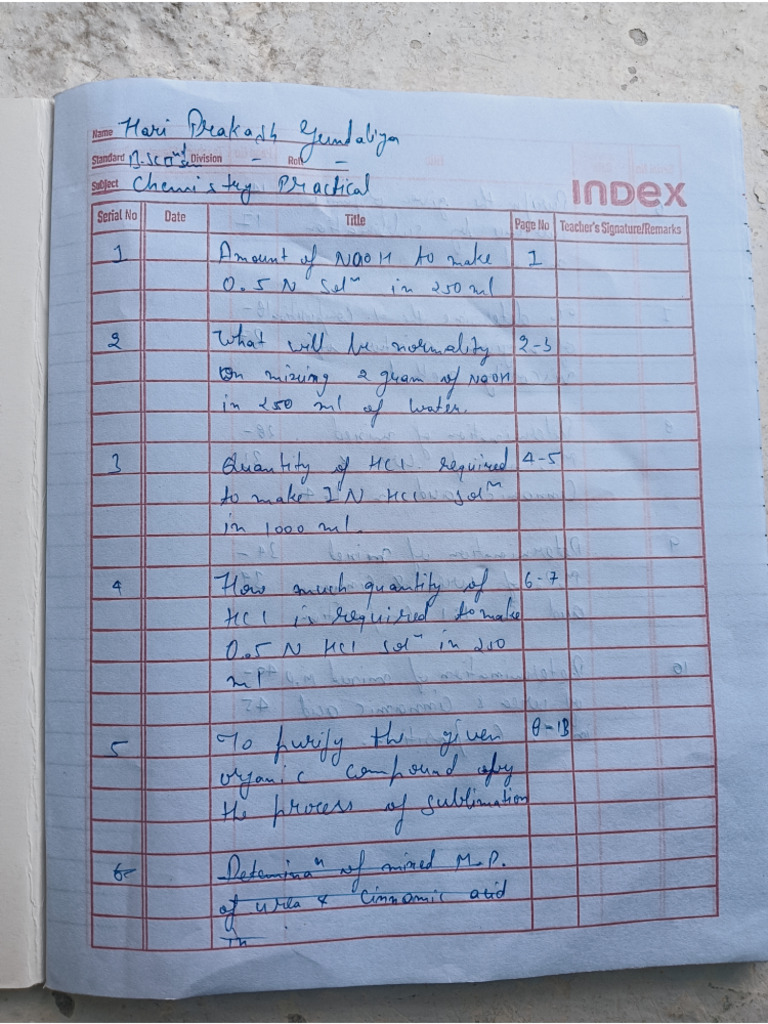 Name Hari Prakash Gundaliya
Standard B.Sc IInd Sem Division - Roll -
Subject Chemistry Practical
INDEX
Serial No Date Title Page No Teacher's Signature/Remarks
1 Amount of NaOH to make 1
0.5 N solⁿ in 250 ml
2 What will be normality 2-3
on mixing 2 gram of NaOH
in 250 ml of water.
3 Quantity of HCl required 4-5
to make 1 N HCl solⁿ
in 1000 ml.
4 How much quantity of 6-7
HCl is required to make
0.5 N HCl solⁿ in 250
ml
5 To purify the given 8-13
organic compound by
the process of sublimation
6 Determinaⁿ of mixed M.P.
of urea & Cinnamic acid
In